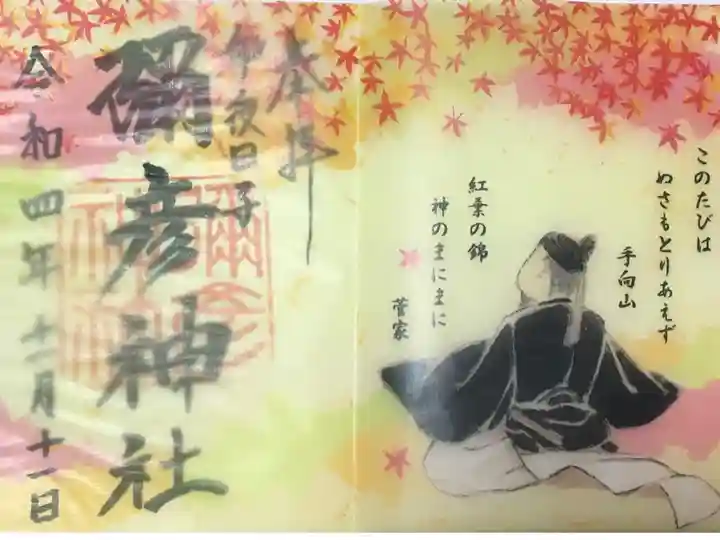 このたびは
ぬさもとりあえず
手向山
紅葉の錦
神のまにまに
菅家
奉拝
伊夜日子
彌彦神社
令和四年十一月十一日